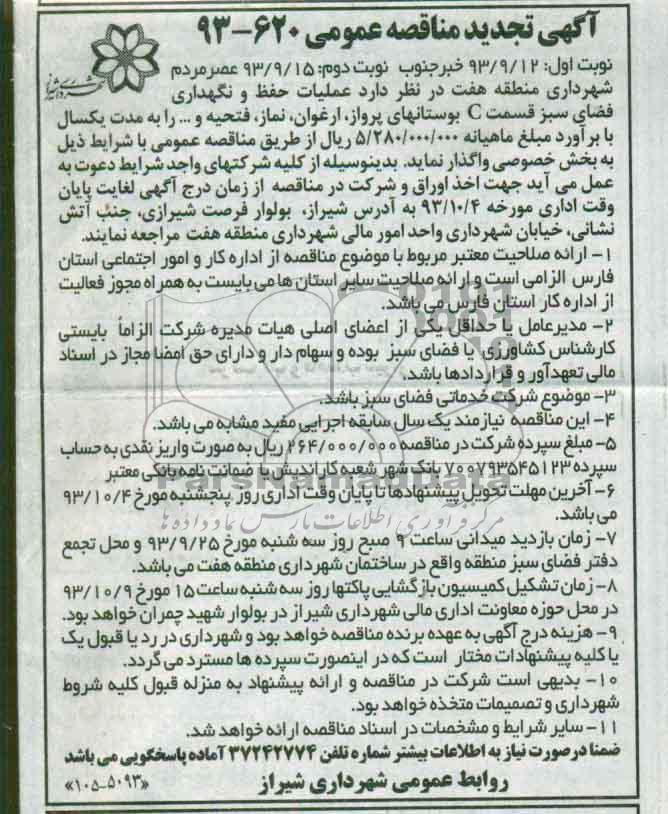 آگهی تجدید مناقصه عمومی ۶۲۰-۹۳
نوبت اول: ۹۳/۹/۱۲ خبرجنوب نوبت دوم: ۹۳/۹/۱۵ عصرمردم
شهرداری منطقه هفت در نظر دارد عملیات حفظ و نگهداری
فضای سبز قسمت C بوستانهای پرواز، ارغوان، نماز، فتحیه و ... را به مدت یکسال
با برآورد مبلغ ماهیانه ۵/۲۸۰/۰۰۰/۰۰۰ ریال از طریق مناقصه عمومی با شرایط ذیل
به بخش خصوصی واگذار نماید. بدینوسیله از کلیه شرکتهای واجد شرایط دعوت به
عمل می آید جهت اخذ اوراق و شرکت در مناقصه از زمان درج آگهی لغایت پایان
وقت اداری مورخه ۹۳/۱۰/۴ به آدرس شیراز، بولوار فرصت شیرازی، جنب آتش
نشانی، خیابان شهرداری واحد امور مالی شهرداری منطقه هفت مراجعه نمایند.
۱- ارائه صلاحیت معتبر مربوط با موضوع مناقصه از اداره کار و امور اجتماعی استان
فارس الزامی است و ارائه صلاحیت سایر استان ها می بایست به همراه مجوز فعالیت
از اداره کار استان فارس می باشد.
۲- مدیرعامل یا حداقل یکی از اعضای اصلی هیات مدیره شرکت الزاماً بایستی
کارشناس کشاورزی یا فضای سبز بوده و سهام دار و دارای حق امضا مجاز در اسناد
مالی تعهدآور و قراردادها باشد.
۳- موضوع شرکت خدماتی فضای سبز باشد.
۴- این مناقصه نیازمند یک سال سابقه اجرایی مفید مشابه می باشد.
۵- مبلغ سپرده شرکت در مناقصه ۲۶۴/۰۰۰/۰۰۰ ریال به صورت واریز نقدی به حساب
سپرده ۷۰۰۷۹۳۵۴۵۱۲۳ بانک شهر شعبه کاراندیش یا ضمانت نامه بانکی معتبر
۶- آخرین مهلت تحویل پیشنهادها تا پایان وقت اداری روز پنجشنبه مورخ ۹۳/۱۰/۴
می باشد.
۷- زمان بازدید میدانی ساعت ۹ صبح روز سه شنبه مورخ ۹۳/۹/۲۵ و محل تجمع
دفتر فضای سبز منطقه واقع در ساختمان شهرداری منطقه هفت می باشد.
۸- زمان تشکیل کمیسیون بازگشایی پاکتها روز سه شنبه ساعت ۱۵ مورخ ۹۳/۱۰/۹
در محل حوزه معاونت اداری مالی شهرداری شیراز در بولوار شهید چمران خواهد بود.
۹- هزینه درج آگهی به عهده برنده مناقصه خواهد بود و شهرداری در رد یا قبول یک
یا کلیه پیشنهادات مختار است که در اینصورت سپرده ها مسترد می گردد.
۱۰- بدیهی است شرکت در مناقصه و ارائه پیشنهاد به منزله قبول کلیه شروط
شهرداری و تصمیمات متخذه خواهد بود.
۱۱- سایر شرایط و مشخصات در اسناد مناقصه ارائه خواهد شد.
ضمنا درصورت نیاز به اطلاعات بیشتر شماره تلفن ۳۷۲۴۲۷۷۴ آماده پاسخگویی می باشد
روابط عمومی شهرداری شیراز
«۱۰۵-۵۰۹۳»
ParsNamadData
مرکز فرآوری اطلاعات پارس نماد داده ها